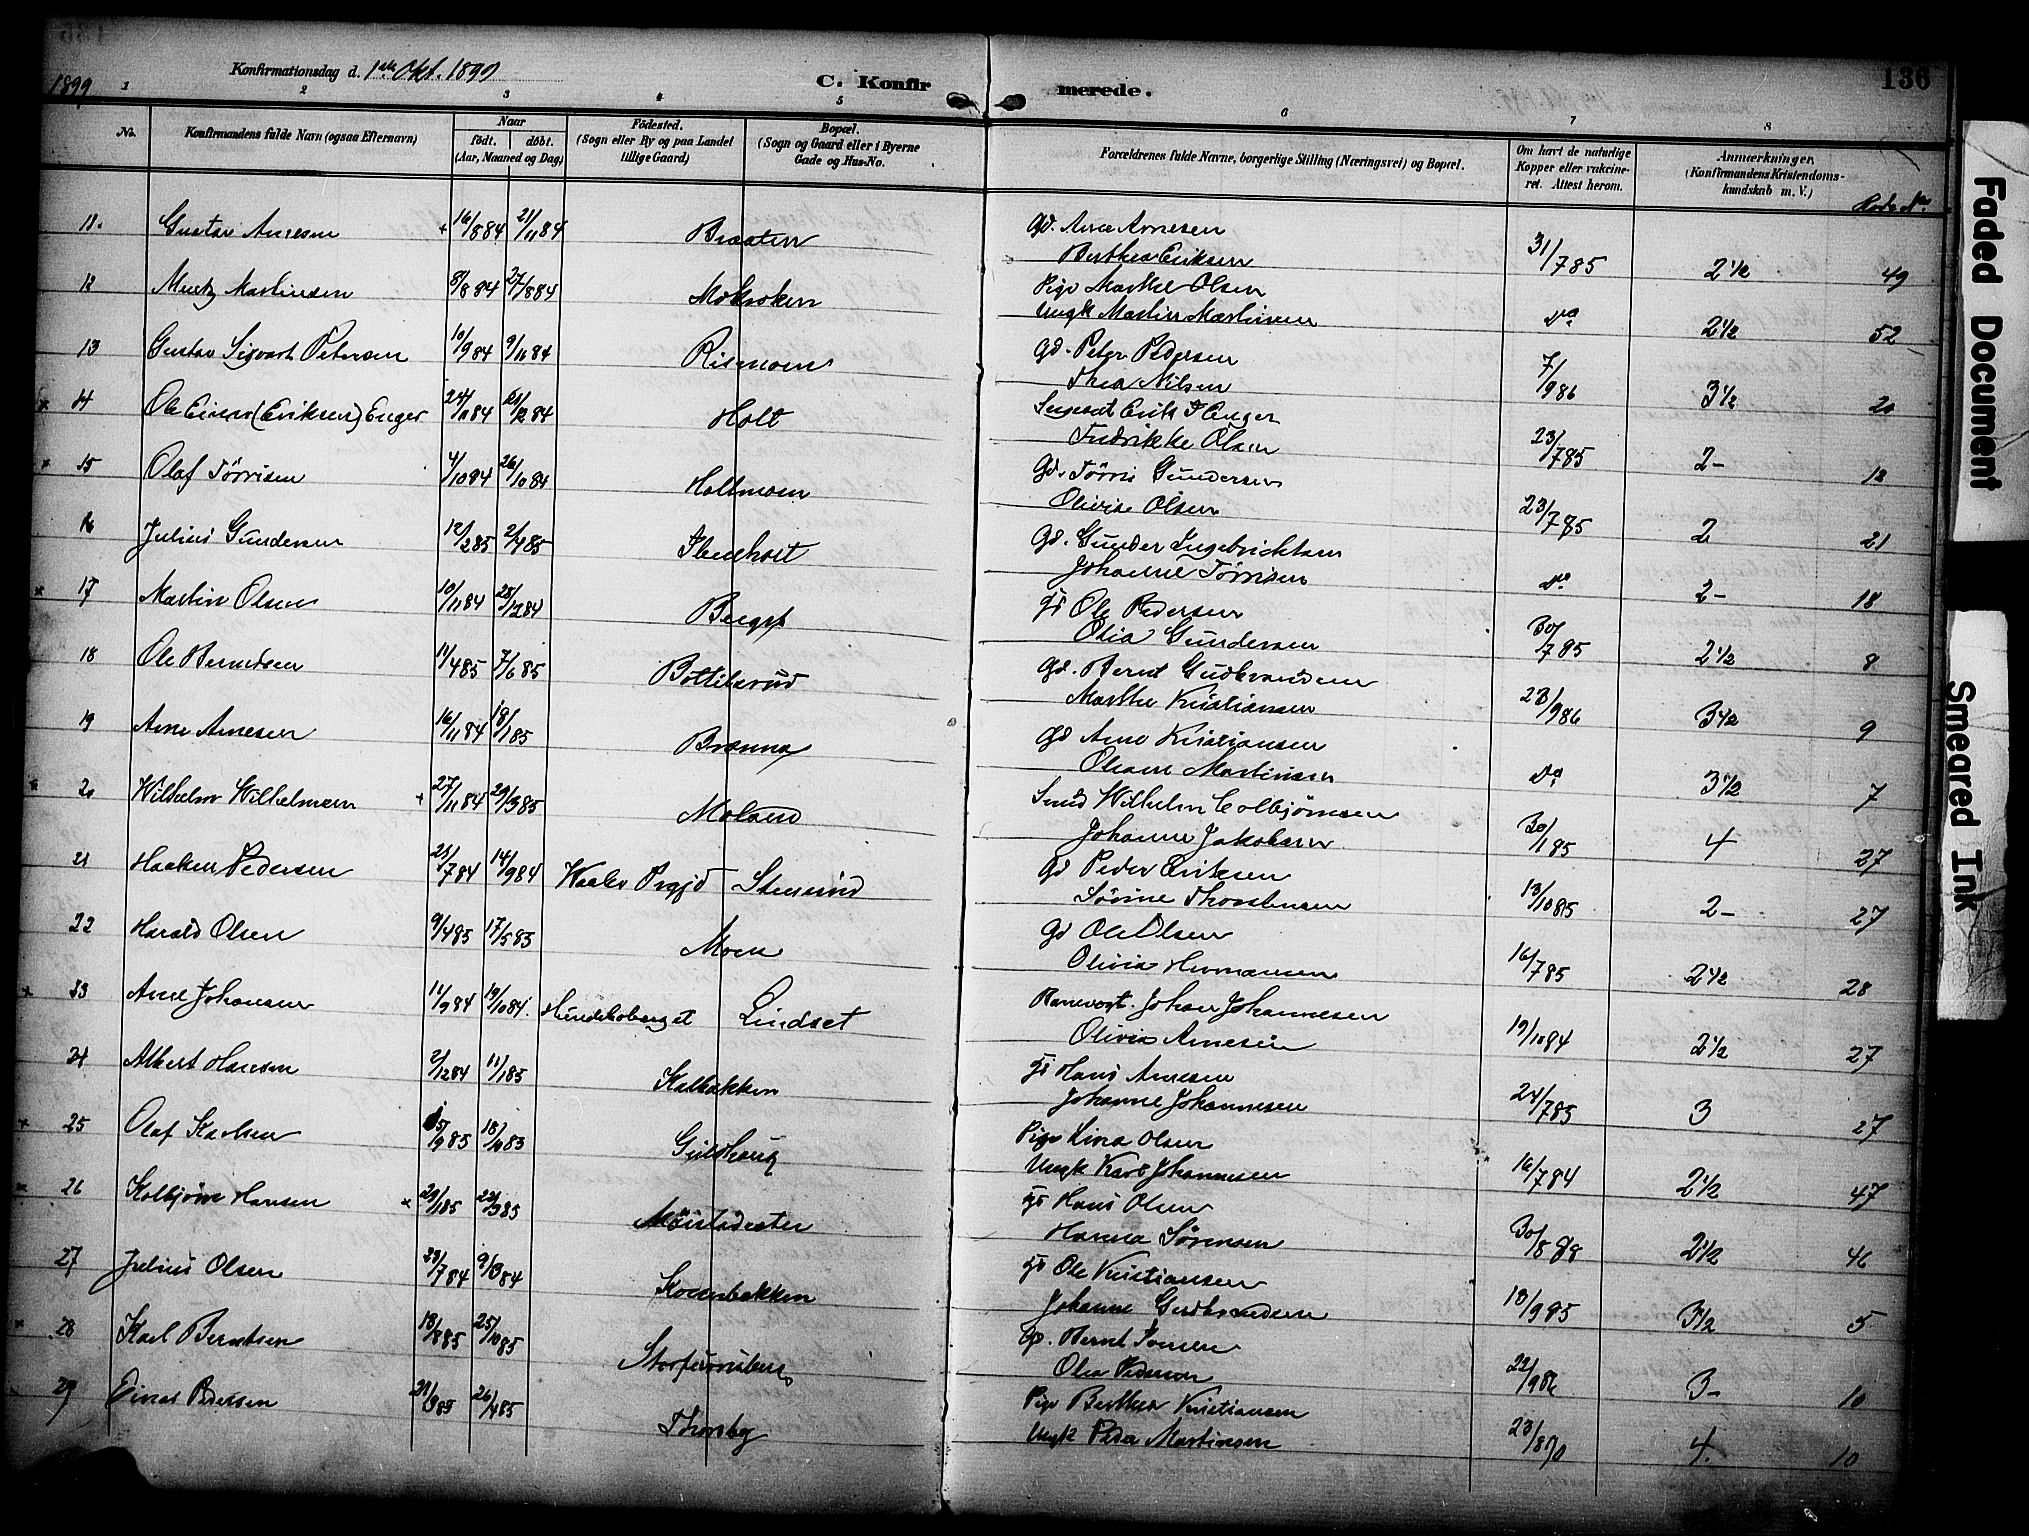 1899
Konfirmationsdag d. 1ste Okt. 1899
C. Konfirmerede.
136
1 2 3 4 5 6 7 8
No.
Konfirmandens fulde Navn (ogsaa Efternavn)
Naar
født. døbt.
(Aar, Maaned og Dag)
Fødested.
(Sogn eller By og paa Landet
tillige Gaard)
Bopæl.
(Sogn og Gaard eller i Byerne
Gade og Hus-No.
Forældrenes fulde Navne, borgerlige Stilling (Næringsvei) og Bopæl.
Om havt de naturlige
Kopper eller vakcine-
ret. Attest herom.
Anmærkninger.
(Konfirmandens Kristendoms-
kundskab m. V.)
11. Gustav Arnesen 16/8 84 21/11 84 Braaten Gd. Arne Arnesen
Berthea Eriksen 31/7 85 2 1/2 49
12 Martinsen 8/8 84 27/8 84 Pige Marthe Olsen
Ungk Martin Martinsen do 2 1/2 52
13 Gustav Sigvart Petersen 10/9 84 9/11 84 Rismoen Gd. Peter Pedersen
Thea Nilsen 7/9 86 3 1/2 20
14 Ole Einar (Eriksen) Enger 84 84 Holt Sergeant Erik Enger
Fredrikke Olsen 23/7 85 2- 12
15 Olaf Tørrisen 4/10 84 26/10 84 Holtmoen Gd. Tørris Gundersen
Olivie Olsen 23/7 85 2 21
16 Julius Gundersen 12/2 85 2/4 85 Stenholt Gd. Gunder Ingebrichtsen
Johanne Tørrisen do 2- 18
17 Martin Olsen 10/11 84 28/12 84 Berget Gs Ole Pedersen
Olia Gundersen 30/7 85 2 1/2 8
18 Ole Berntsen 11/4 85 7/6 85 Bottilsrud Gd. Bernt Gudbrandsen
Marthe Kristiansen 23/9 86 3 1/2 9
19 Arne Arnesen 16/11 84 18/1 85 Brænna Gd Arne Kristiansen
Oleane Martinsen do 3 1/2 7
20 Wilhelm Wilhelmsen 27/11 84 29/3 85 Moland Smed Wilhelm Colbjørnsen
Johanne Jakobsen 30/1 85 4 27
21 Haaken Pedersen 23/7 84 14/9 84 Vaaler Prgjd Stensrud Gd Peder Eriksen
Sørine Thorstensen 13/10 85 2- 27
22 Harald Olsen 9/4 85 17/5 85 Moen Gd Ole Olsen
Olivia Hermansen 16/7 85 2 1/2 28
23 Arne Johansen 11/9 84 19/10 84. Hundehoberget Lindset Banevogt. Johan Johannesen
Olivia Arnesen 19/10 84 2 1/2 27
24 Albert Hansen 2/12 84 11/1 85 Kalbakken Gs Hans Arnesen
Johanne Johannesen 24/7 85 3 27
25 Olaf Karlsen 5/9 85 18/10 85 Gulshaug Pige Lina Olsen
Ungk Karl Johannesen 16/7 84 2 1/2 47
26 Kolbjørn Hansen 29/1 85 22/3 85 Møistadeeter Gs Hans Olsen
Hanna Sørensen 30/8 2 1/2 46
27 Julius Olsen 23/7 84 84 Kovenbakken Gs Ole Kristiansen
Johanne Gudbrandsen 13/9 85 3 1/2 5
28 Karl Berntsen 18/8 85 25/10 85 Gd. Bernt Ivarsen
Olea Pedersen 22/9 86 3- 10
29 Einar Pedersen 85 26/4 85 Thorsby Pige Berthea Kristiansen
Ungk Peder Martinsen 23/8 4. 10
Faded Document
Smeared Ink